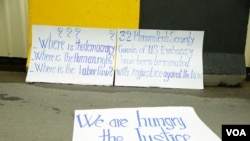 ? ? ?
_ Where is the democracy
_ Where is the Human right
_ Where is the Labor Law?
32 Permanent Security
Guards of US Embassy
have been terminated
with regardless against the law
We are hungry
the Justice
VOA